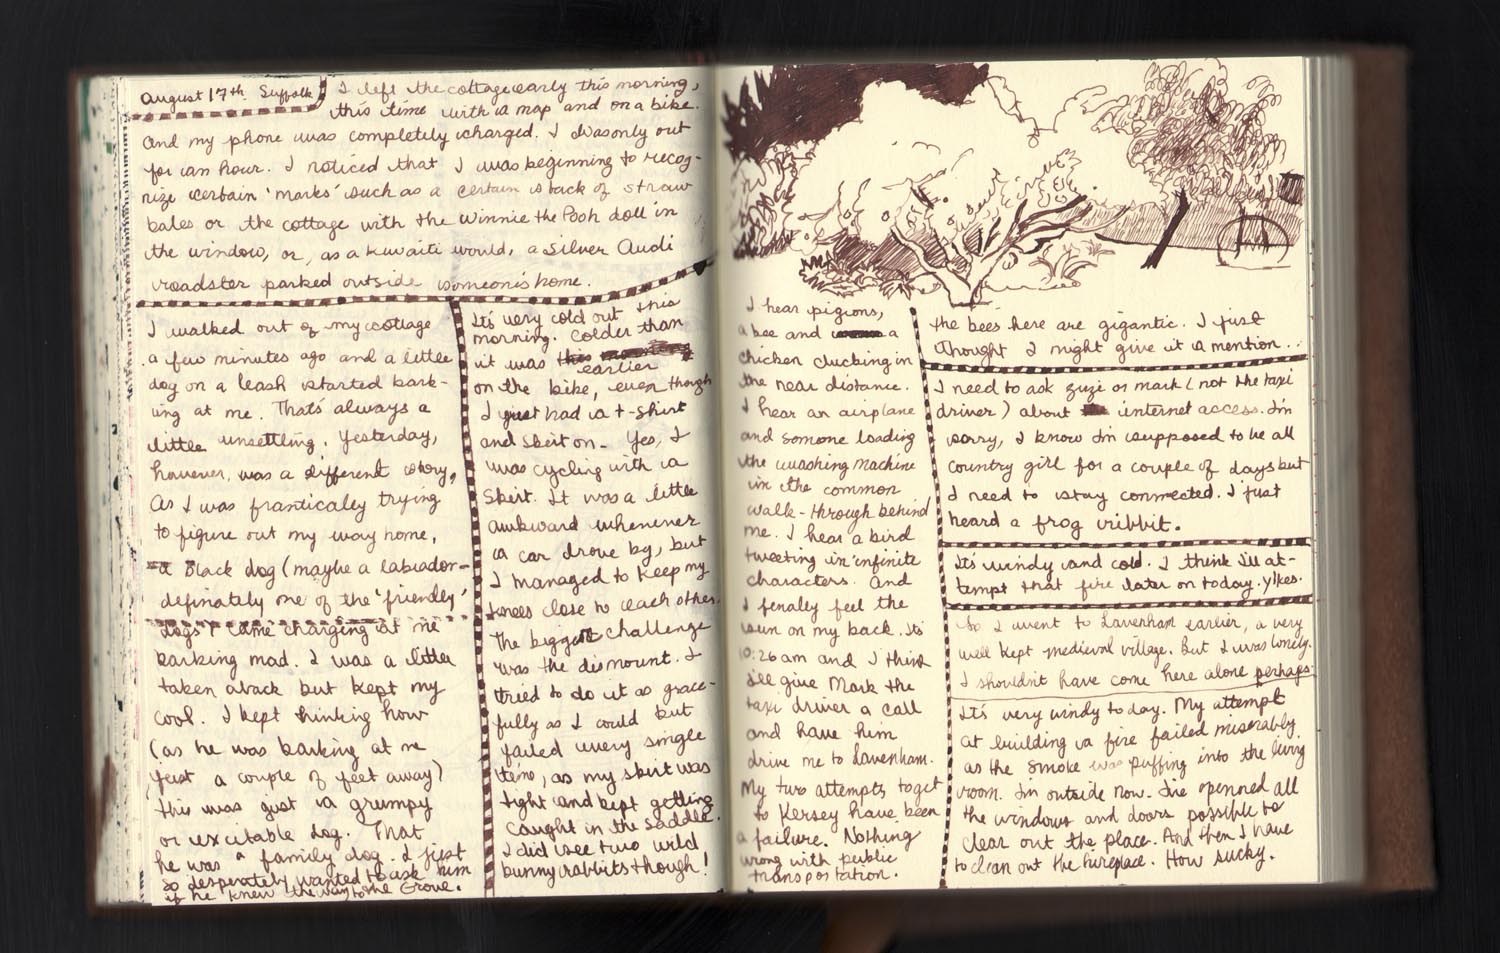 August 17th. Suffolk
I left the cottage early this morning,
this time with a map and on a bike.
And my phone was completely charged. I was only out
for an hour. I noticed that I was beginning to recog-
nize certain 'marks' such as a certain stack of straw
bales or the cottage with the Winnie the Pooh doll in
the window, or, as a kuwaiti would, a silver Audi
roadster parked outside someone's home.
I walked out of my cottage
a few minutes ago and a little
dog on a leash started bark-
ing at me. That's always a
little unsettling. Yesterday,
however, was a different story,
As I was frantically trying
to figure out my way home,
a Black dog (maybe a labrador-
definately one of the 'friendly'
dogs) came charging at me
barking mad. I was a little
taken aback but kept my
cool. I kept thinking how
(as he was barking at me
just a couple of feet away)
this was just a grumpy
or excitable dog. That
he was a family dog. I just
so desperately wanted to ask him
if he knew the way to the Grove.
It's very cold out this
morning. Colder than
it was this morning
earlier
on the bike, even though
I just had a t-shirt
and skirt on. Yes, I
was cycling with a
Skirt. It was a little
awkward whenever
a car drove by, but
I managed to keep my
knees close to each other.
The biggest challenge
was the dismount. I
tried to do it as grace-
fully as I could but
failed every single
time, as my skirt was
tight and kept getting
caught in the saddle.
I did see two wild
bunny rabbits though!
I hear pigions,
a bee and a
chicken clucking in
the near distance.
I hear an airplane
and somone loading
the washing machine
in the common
walk-through behind
me. I hear a bird
tweeting in infinite
characters. And
I finaley feel the
sun on my back. It's
10:26am and I think
I'll give Mark the
taxi driver a call
and have him
drive me to Lavenham.
My two attempts to get
to Kersey have been
a failure. Nothing
wrong with public
transportation.
the bees here are gigantic. I just
thought I might give it a mention...
I need to ask zuzi or mark (not the taxi
driver) about internet access. Im
sorry, I know Im supposed to be all
country girl for a couple of days but
I need to stay connected. I just
heard a frog ribbit.
It's windy and cold. I think I'll at-
tempt that fire later on today. yikes.
So I went to Lavenham earlier, a very
well kept medieval village. But I was lonely.
I shouldn't have come here alone perhaps.
It's very windy today. My attempt
at building a fire failed miserably
as the smoke was puffing into the living
room. Im outside now. I've openned all
the windows and doors possible to
clear out the place. And then I have
to clean out the fireplace. How sucky.